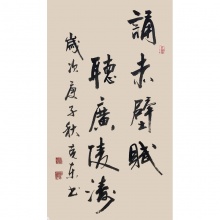 誦赤壁賦
聽廣陵濤
歲次庚子秋